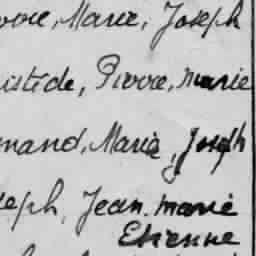 Marie, Joseph
istide, Pierre, Marie
mand, Marie, Joseph
seph, Jean. Marie
Etienne